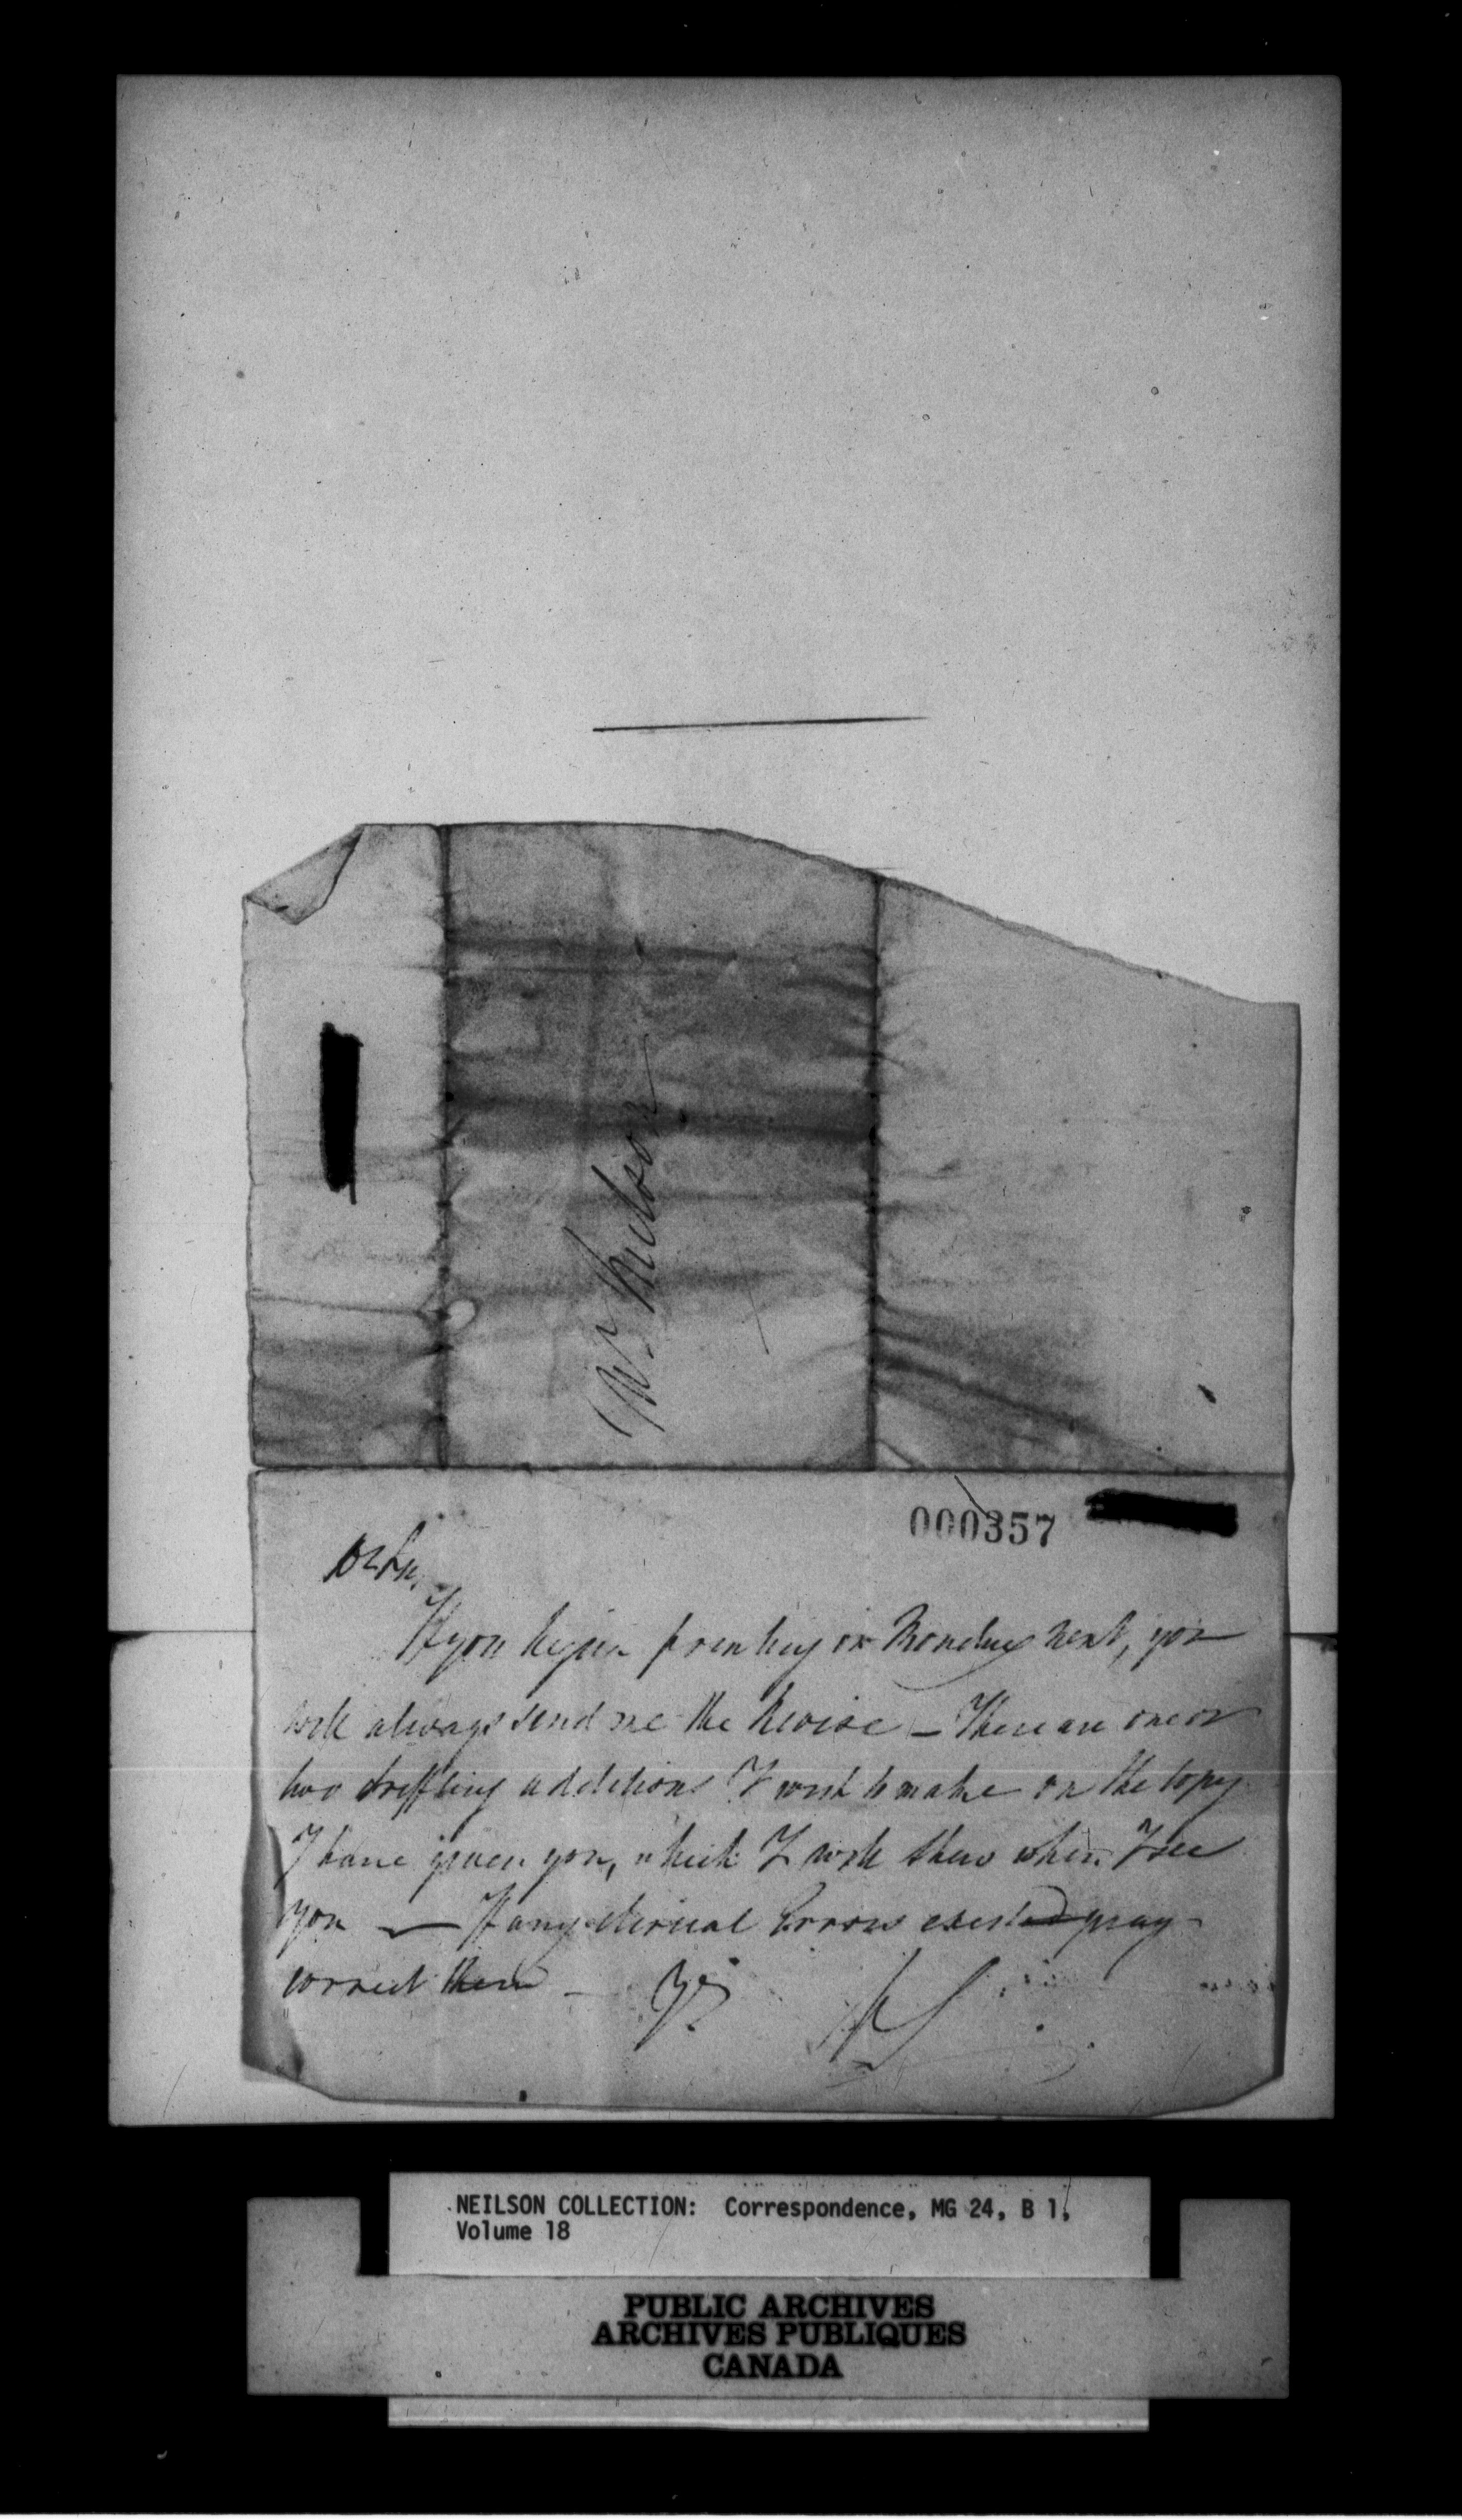 Mr. Neilson
000357
Dr Sir,
If you begin printing on Monday next, you
will always send me the Revise — There are one or
two trifling additions I wish to make on the Copy
I have given you, which I will shew when I see
you — If any clerical Errors exist pray
correct them — Yrs
NEILSON COLLECTION: Correspondence, MG 24, B 1,
Volume 18
PUBLIC ARCHIVES
ARCHIVES PUBLIQUES
CANADA